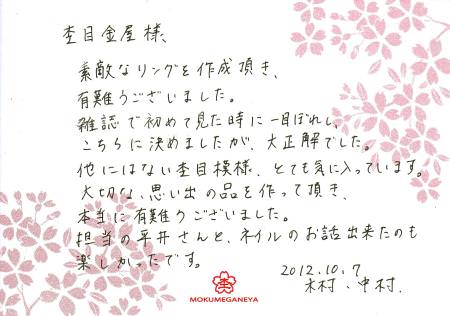 杢目金屋様、
素敵なリングを作成頂き、
有難うございました。
雑誌で初めて見た時に一目ぼれし、
こちらに決めましたが、大正解でした。
他にはない杢目模様、とても気に入っています。
大切な、思い出の品を作って頂き、
本当に有難うございました。
担当の平井さんと、ネイルのお話出来たのも
楽しかったです。
2012.10.7
木村、中村.
杢
MOKUMEGANEYA